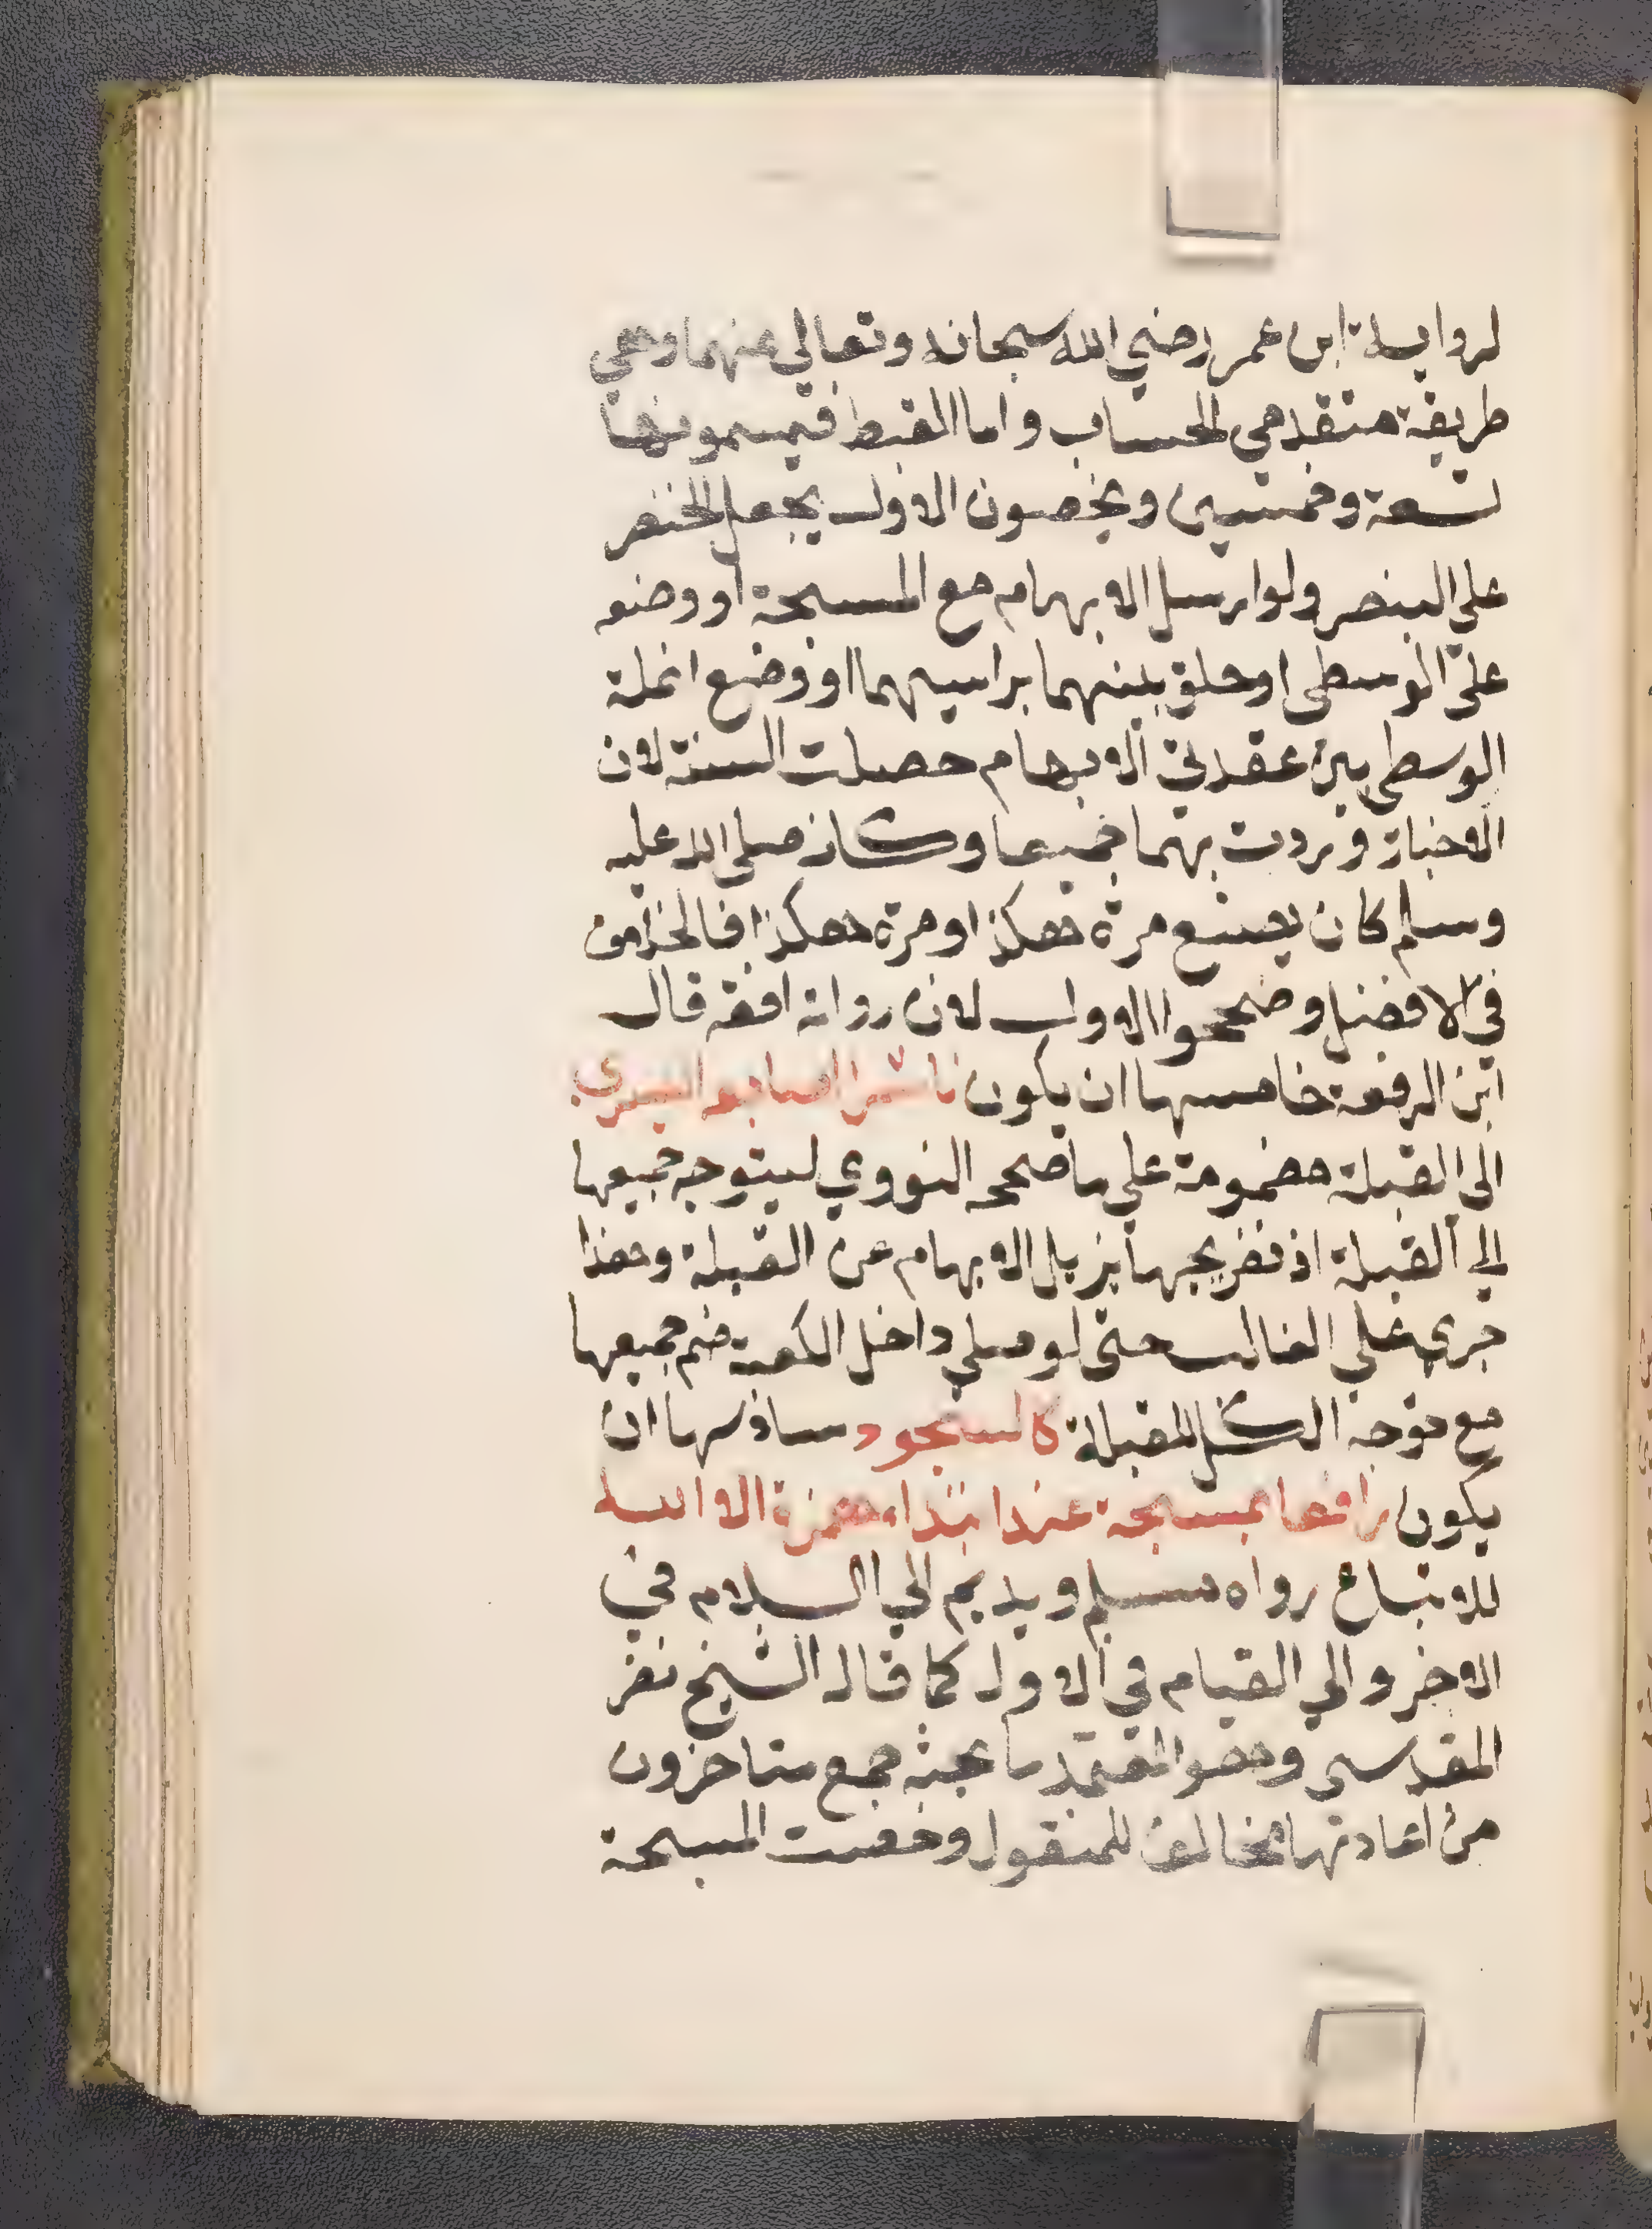 لرواية ابن عمر رضي الله سبحانه وتعالي عنهما وهي
طريقة متقدمي الحساب واما القبط فيسمونها
تسعة وخمسين ويخصون الاول يجعل الخنصر
علي البنصر ولو ارسل الابهام مع المسبحة او وضعه
علي الوسطي او حلق بينهما براسيهما او وضع انملة
الوسطي بين عقدتي الابهام حصلت السنة لان
الاخبار وردت بهما جميعا وكان صلي الله عليه
وسلم كان يصنع مرة هكذا ومرة هكذا فالخلاف
في الافضل وصححوا الاول لان رواته افقه قال
ابن الرفعة خامسها ان يكون ناشرا اصابع اليسري
الي القبلة مضمومة علي ما صححه النووي ليتوجه جميعها
الي القبلة اذ تفريجها يزيل الابهام عن القبلة وهذا
جري علي الغالب حتي لو صلي داخل الكعبة ضم جميعها
مع توجه الكل للقبلة كالسجود سادسها ان
يكون رافعا مسبحة عند ابتداء همزة الا الله
للاتباع رواه مسلم ويديم الي السلام في
الاخر والي القيام في الاول كما قال الشيخ نصر
المقدسي وهو المعتمد ما بحثه جمع متاخرون
من اعادتها مخالف للمنقول وخصت المسبحة